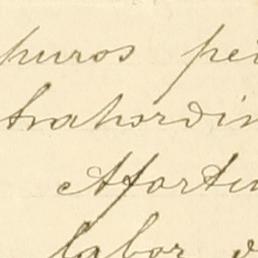 puros pe
trahordin
Afortu
labor d